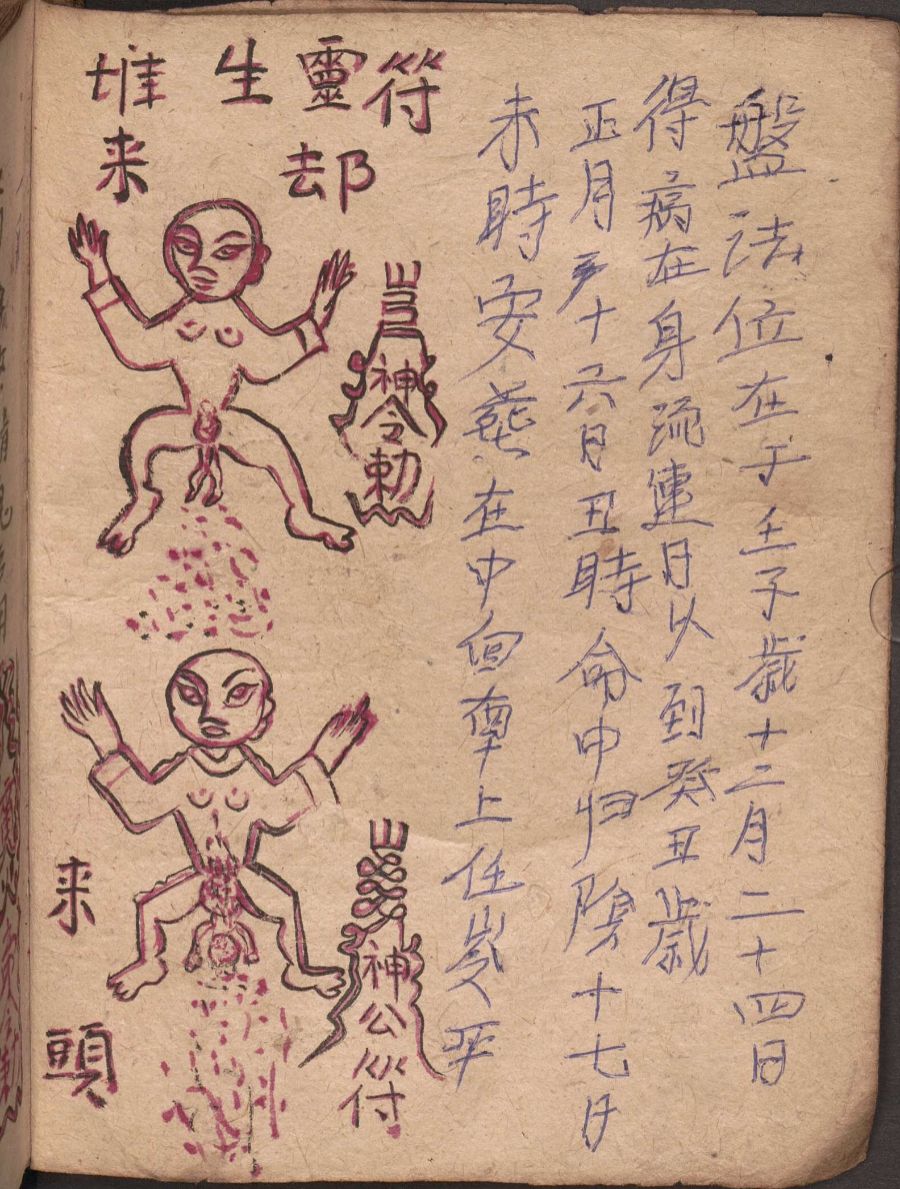 盤法位在于壬子歲十二月二十四日
得病在身流連日以到癸丑歲
正月十六月丑時命中归陰十七日
未時安葬在中向上任平
堆生靈符
来却
神令勅
来頭
神公符